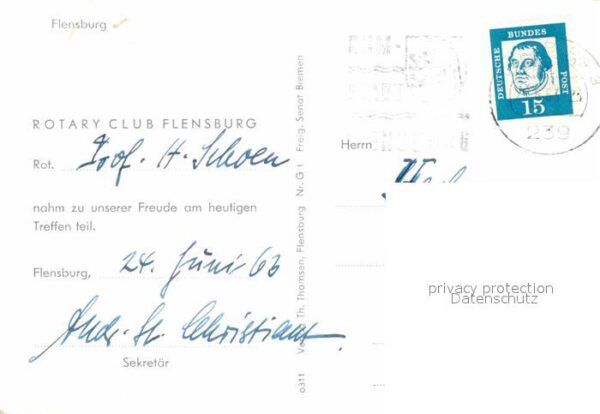 Flensburg
ROTARY CLUB FLENSBURG
Rot. Prof. H. Schoen
nahm zu unserer Freude am heutigen
Treffen teil.
Flensburg, 24. Juni 63
Sekretär
0311 Th. Thomsen, Flensburg Nr. G 1 Freig. Senat Bremen
DEUTSCHE BUNDES POST
15
239
Herrn
privacy protection
Datenschutz